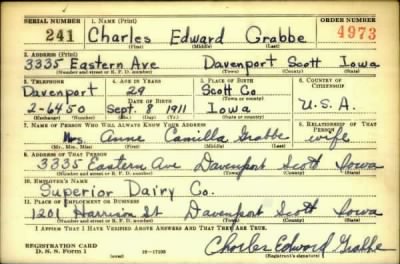 SERIAL NUMBER 1. NAME (Print) ORDER NUMBER
241 Charles Edward Grabbe 4973
(First) (Middle) (Last)
2. ADDRESS (Print)
3335 Eastern Ave Davenport Scott Iowa
(Number and street or R. F. D. number) (Town) (County) (State)
3. TELEPHONE 4. AGE IN YEARS 5. PLACE OF BIRTH 6. COUNTRY OF CITIZENSHIP
Davenport 29 Scott Co
DATE OF BIRTH (Town or county)
2-6450 Sept. 8 1911 Iowa U.S.A.
(Exchange) (Number) (Mo.) (Day) (Yr.) (State or country)
7. NAME OF PERSON WHO WILL ALWAYS KNOW YOUR ADDRESS 8. RELATIONSHIP OF THAT PERSON
Mrs. Anne Camilla Grabbe wife
(Mr., Mrs., Miss) (First) (Middle) (Last)
9. ADDRESS OF THAT PERSON
3335 Eastern Ave Davenport Scott Iowa
(Number and street or R. F. D. number) (Town) (County) (State)
10. EMPLOYER'S NAME
Superior Dairy Co.
11. PLACE OF EMPLOYMENT OR BUSINESS
1201 Harrison St Davenport Scott Iowa
(Number and street or R. F. D. number) (Town) (County) (State)
I AFFIRM THAT I HAVE VERIFIED ABOVE ANSWERS AND THAT THEY ARE TRUE.
REGISTRATION CARD
D. S. S. Form 1 16-17105 Charles Edward Grabbe
(Registrant's signature)